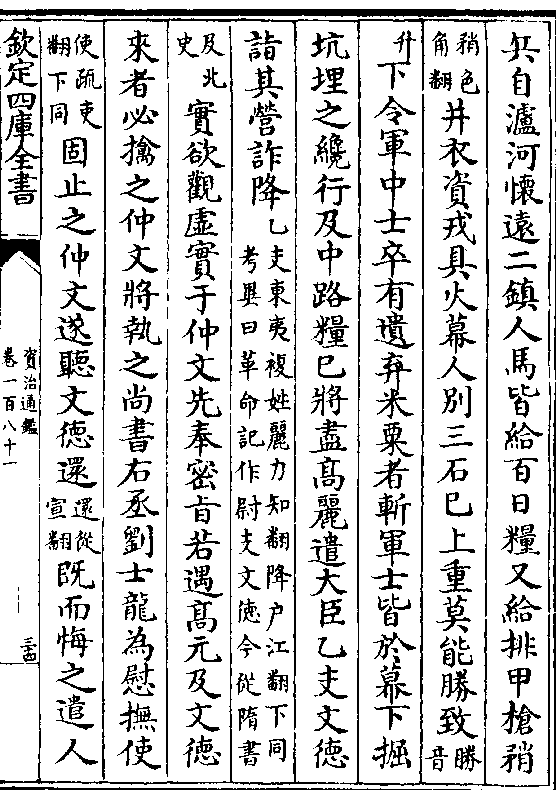 兵自瀘河懷遠二鎮人馬皆給百日糧又給排甲槍矟
矟色角翻并衣資戎具火幕人別三石已上重莫能勝致勝音
升下令軍中士卒有遺弃米粟者斬軍士皆於幕下掘
坑埋之纔行及中路糧已將盡高麗遣大臣乙支文德
詣其營詐降乙支東夷複姓麗力知翻降户江翻下同考異曰革命記作尉支文德今從隋書
及北史實欲觀虛實于仲文先奉密旨若遇高元及文德
來者必擒之仲文將執之尚書右丞劉士龍為慰撫使
使疏吏翻下同固止之仲文遂聽文德還還從宣翻既而悔之遣人
欽定四庫全書
資治通鑑
卷一百八十一
三四